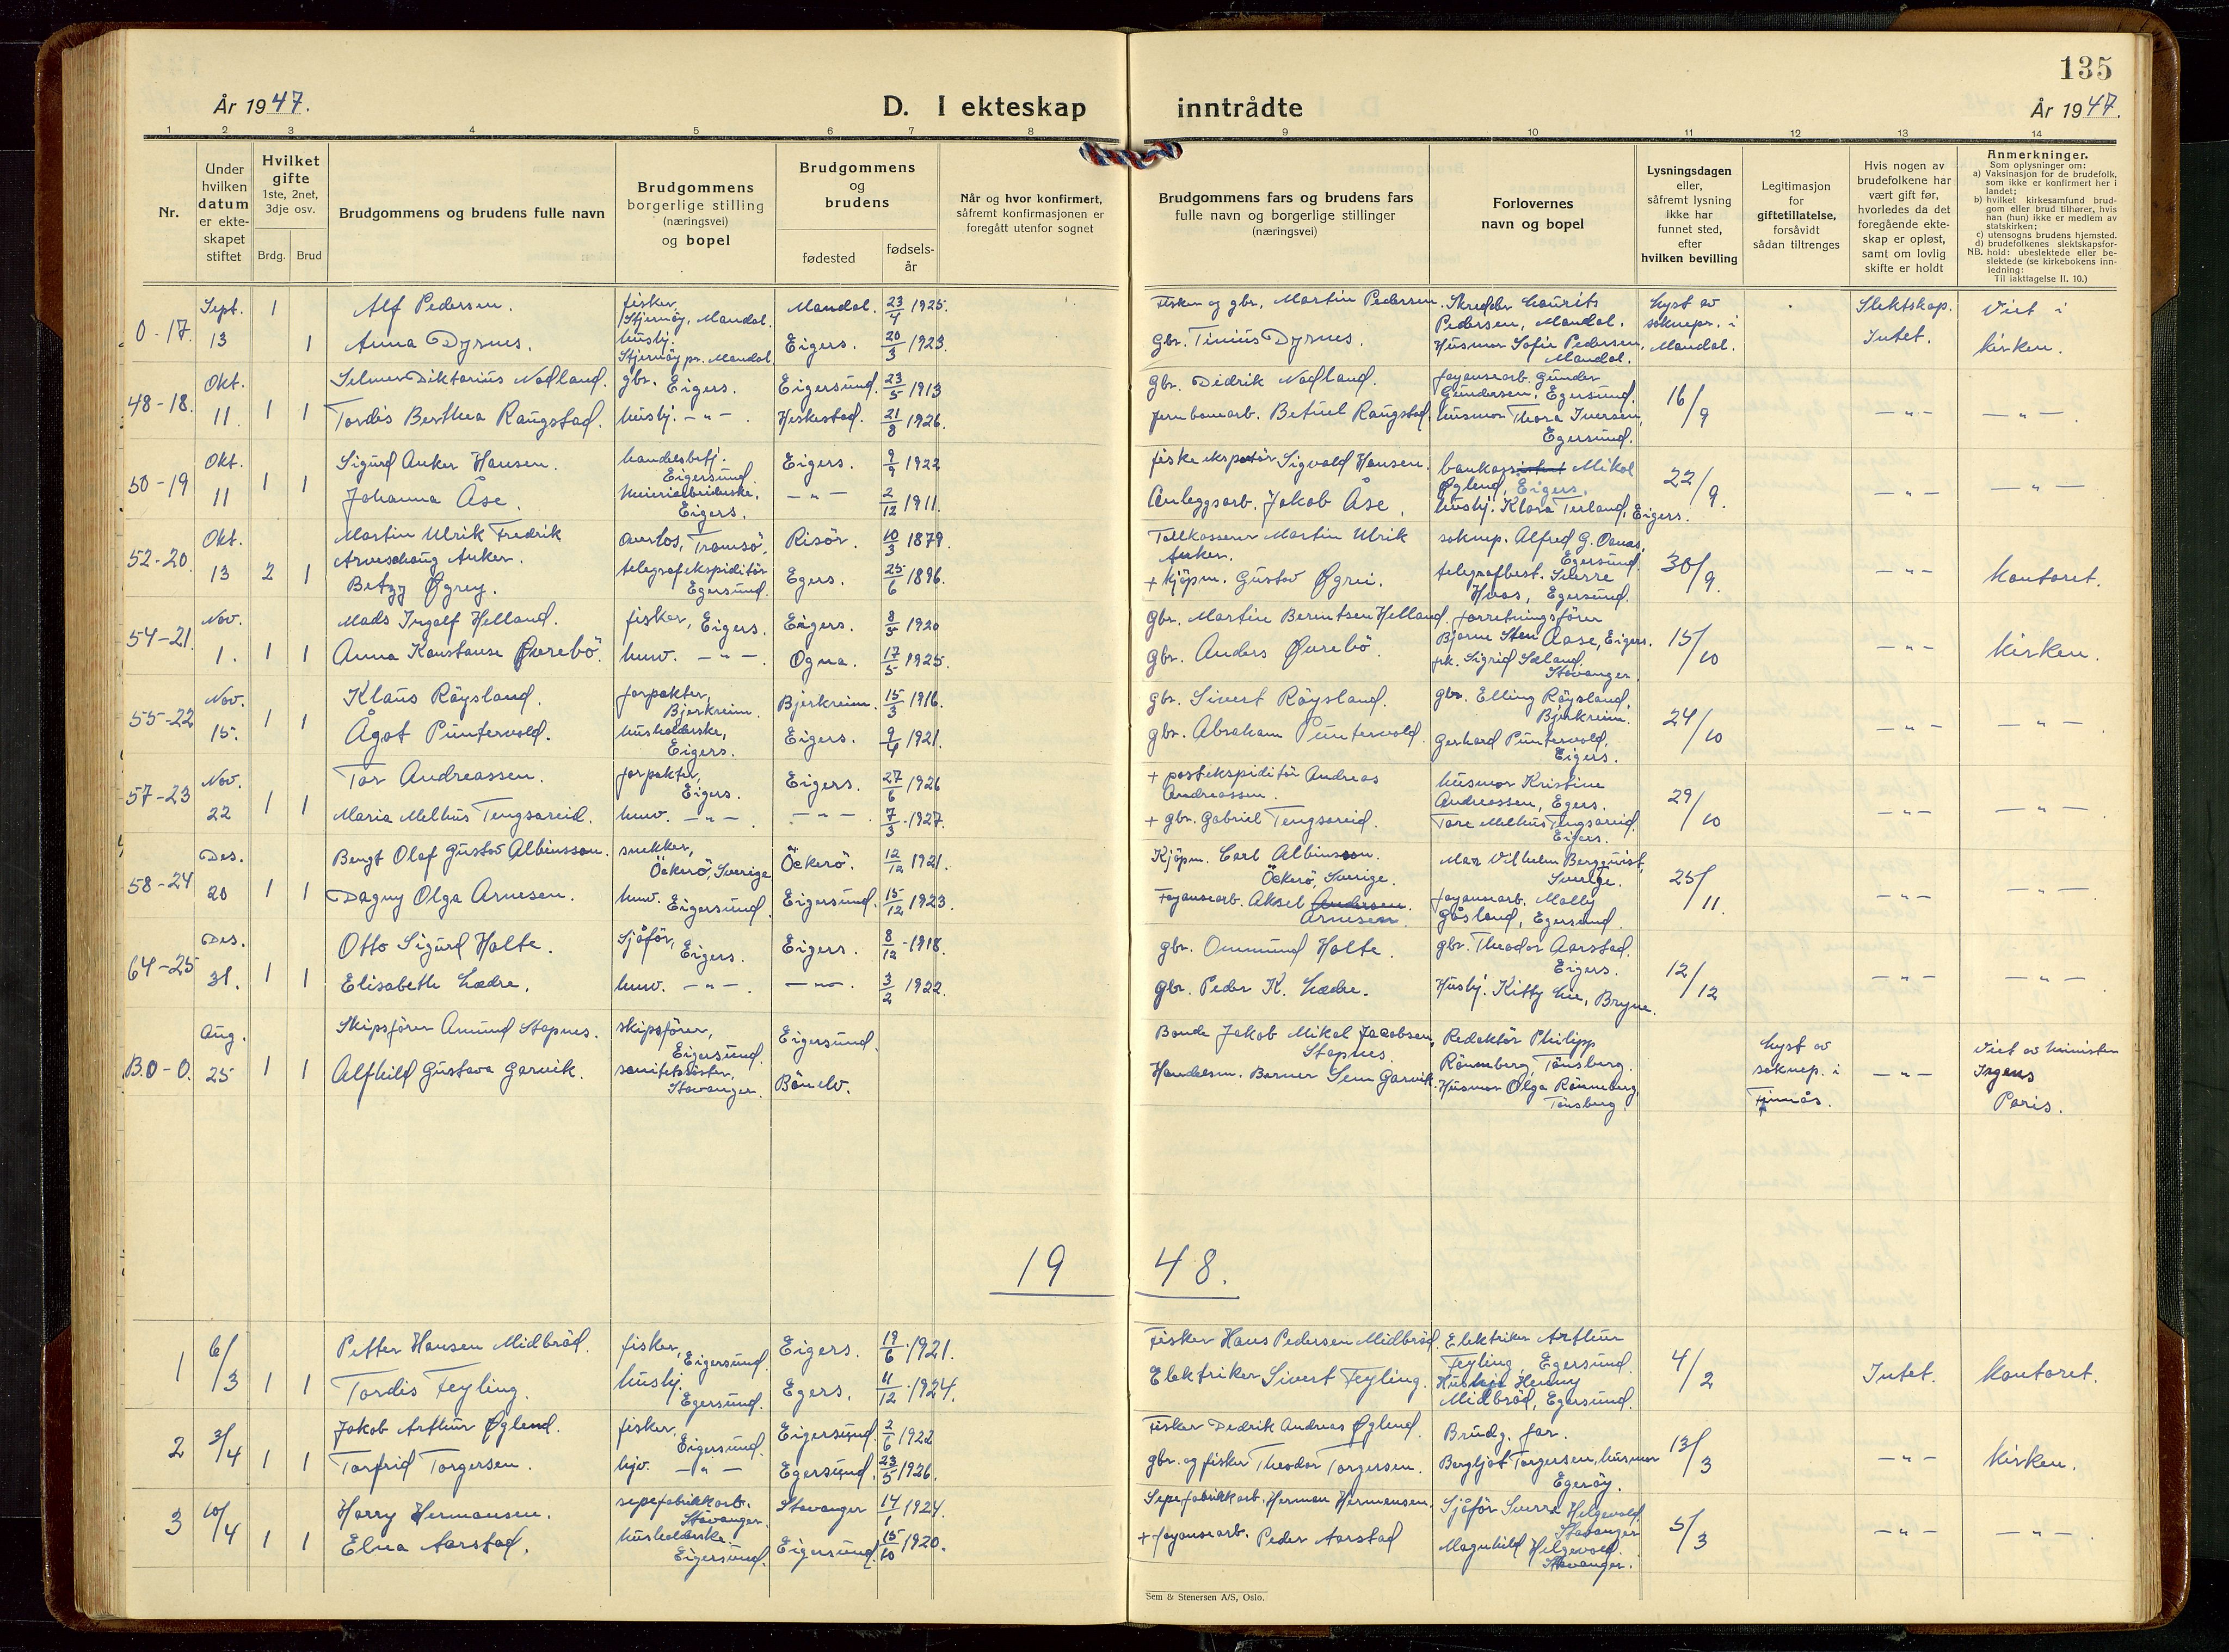 135
År 1947.
D. I ekteskap inntrådte
År 1947.
1 2 3 4 5 6 7 8 9 10 11 12 13 14
Nr.
Under hvilken datum er ekteskapet stiftet
Hvilket gifte 1ste, 2net, 3dje osv.
Brdg. Brud
Brudgommens og brudens fulle navn
Brudgommens borgerlige stilling (næringsvei) og bopel
Brudgommens og brudens
fødested
fødsels-år
Når og hvor konfirmert, såfremt konfirmasjonen er foregått utenfor sognet
Brudgommens fars og brudens fars fulle navn og borgerlige stillinger (næringsvei)
Forlovernes navn og bopel
Lysningsdagen eller, såfremt lysning ikke har funnet sted, efter hvilken bevilling
Legitimasjon for giftetillatelse, forsåvidt sådan tiltrenges
Hvis nogen av brudefolkene har vært gift før, hvorledes da det foregående ekteskap er opløst, samt om lovlig skifte er holdt
Anmerkninger.
Som oplysninger om:
a) Vaksinasjon for de brudefolk, som ikke er konfirmert her i landet;
b) hvilket kirkesamfund brudgom eller brud tilhører, hvis han (hun) ikke er medlem av statskirken;
c) utensogns brudens hjemsted.
d) brudefolkenes slektskapsforhold: ubeslektede eller beslektede (se kirkebokens innledning:
NB.
Til iakttagelse II. 10.)
0-17. Sept. 13 1 Alf Pedersen. fisker, Stjernöy, Mandal. Mandal. 23/4 1925. Fisker og gbr. Martin Pedersen. Skredder Laurits Pedersen, Mandal. Lyst av soknepr. i Mandal. Slektskap. Viet i
1 Anna Dyrnes. husbj. Stjernöy pr. Mandal. Eigers. 20/3 1923. Gbr. Tinius Dyrnes. Husmor Sofie Pedersen, Mandal. Intet. kirken.
48-18. Okt. 11. 1 1 Selmer Diktorius Nodland. gbr. Eigers. Eigersund. 23/5 1913 Gbr. Didrik Nodland. fayansearb. Gunder Gundersen, Egersund. 16/9 - " - - " -
Tordis Berthea Raugstad. husbj. - " - Heskestad. 21/8 1926. Jernbanearb. Betuel Raugstad. husmor Thora Iversen, Egersund.
50-19 Okt. 11 1 1 Sigurd Anker Hansen. handelsbetj. Eigersund. Eigers. 9/9 1922 fiskeeksportör Sigvald Hansen. Mikal Ögland, Eigers. 22/9. - " - - " -
Johanna Åse. meieriarbeiderske, Eigers. - " - 2/12 1911. Anleggsarb. Jakob Åse. husbj. Klara Terland, Eigers.
52-20. Okt. 13 2 1 Martin Ulrik Fredrik Arveschoug Anker. overlos, Tromsö. Risör. 10/3 1879. Tollkasserer Martin Ulrik Anker. soknep. Alfred G. Oanæs, Egersund. 30/9. - " - kontoret.
Betzy Øgrey. telegrafekspiditör Egersund. Egers. 25/6 1896. + Kjöpm. Gustav Øgrei. telegrafbest. Sverre Huas, Egersund.
54-21. Nov. 1. 1 1 Mads Ingolf Helland. fisker, Eigers. Eigers. 8/5 1920 Gbr. Martin Berentsen Helland. forretningsförer Bjarne Sten Aase, Eigers. 15/10 - " - kirken.
Anna Konstanse Øvrebö. huv. - " - Ogna. 17/5 1925. Gbr. Anders Øvrebö. frk. Sigrid Sæland, Stavanger.
55-22 Nov. 15. 1 1 Klaus Röysland. forpakter, Bjerkreim. Bjerkreim. 15/3 1916. Gbr. Sivert Röysland. Gbr. Elling Röysland, Bjerkreim. 24/10 - " - - " -
Ågot Puntervold. husholderske, Eigers. Eigers. 9/4 1921. Gbr. Abraham Puntervold. Gerhard Puntervold, Eigers.
57-23 Nov. 22 1 1 Tor Andreassen. forpakter, Eigers. Eigers. 27/6 1926 + postekspiditör Andreas Andreassen. husmor Kristine Andreassen, Egers. 29/10 - " - - " -
Maria Melhus Tengsareid. huv. - " - - " - 7/3 1927. + Gbr. Gabriel Tengsareid. Tore Melhus Tengsareid. Eigers.
58-24 Des. 20 1 1 Bengt Olof Gustav Albinsson. snekker, Öckerö, Sverige Öckerö. 12/12 1921. Kjöpm. Carl Albinsson. Öckerö, Sverige. Max Vilhelm Bergquist, Sverige. 25/11. - " - - " -
Dagny Olga Arnesen. huv. Eigersund. Eigersund. 15/12 1923. Fayansearb. Aksel Andersen. Arnesen fayansearb. Molly Gåsland, Egersund.
64-25 Des. 31. 1 1 Otto Sigurd Holte. Sjåför, Eigers. Eigers. 8/12 1918. Gbr. Ommund Holte. Gbr. Theodor Aarstad. Eigers. 12/12 - " - - " -
Elisabeth Lædre. huv. - " - - " - 3/2 1922. Gbr. Peder K. Lædre. Husbj. Kitty Lie, Bryne.
B.0-0. Aug. 25 1 1 Skipsförer Amund Stapnes. skipsförer, Eigersund. Eigersund. Bonde Jakob Mikal Jacobsen, Stapnes. Redaktör Philipp Rönneberg, Tönsberg. Lyst av soknep. i Finnås. - " - Viet av minister Irgens Paris.
Alfhild Gustava Garvik. sanitetssöster, Stavanger. Bömlo. Handelsm. Berner Sem Garvik. Husmor Olga Rönneberg, Tönsberg.
1948.
1 6/3 1 1 Petter Hansen Midbröd. fisker, Eigersund. Eigers. 19/6 1921. Fisker Hans Pedersen Midbröd. Elektriker Arthur Feyling, Egersund. 4/2 Intet. kontoret.
Tordis Feyling. husbj. Egersund. Egers. 11/12 1924. Elektriker Sivert Feyling. Henny Midbröd, Egersund.
2 3/4 1 1 Jakob Arthur Øglend. fisker, Eigersund. Eigersund. 2/6 1922 Fisker Dedrik Andreas Øglend. Brudg. far. 13/3 - " - kirken.
Torfrid Torgersen. hjv. - " - Egersund. 23/5 1926. gbr. og fisker Theodor Torgersen. Bergljot Torgersen, husmor Egeröy.
3 10/4 1 1 Harry Hermansen. sepefabrikkarb. Stavanger. Stavanger 14/1 1924. Sepefabrikkarb. Herman Hermansen. Sjåför Sverre Helgevold, Stavanger 5/3 - " - - " -
Elna Aarstad. husholderske. Eigersund. Eigersund. 15/10 1920. + fayansearb. Peder Aarstad Magnhild Helgevold. Stavanger.
Sem & Stenersen A/S, Oslo.